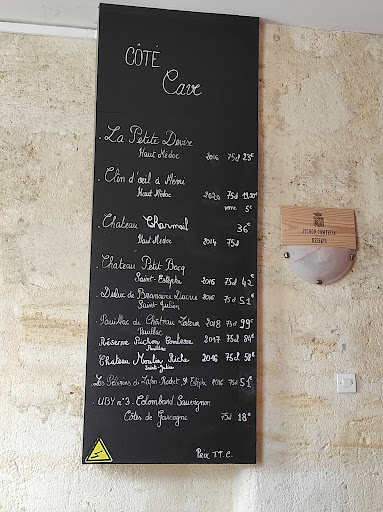 CÔTÉ
Cave
. La Petite Devise
Haut Médoc 2016 75cl 23€
. Clin d'œil à Mémi
Haut Médoc 2020 75cl 19,20€
verre 5€
. Chateau Charmail 36€
Haut Médoc 2014 75cl
. Chateau Petit Bocq
Saint-Estèphe 2016 75cl 42€
. Duluc de Branaire Ducru 2016 75cl 51€
Saint-Julien
. Pauillac du Château Latour 2018 75cl 99€
Pauillac
. Réserve Pichon Comtesse 2017 75cl 84€
Pauillac
. Chateau Moulin Riche 2016 75cl 58€
Saint-Julien
. Les Pèlerins de Lafon Rochet, St Estèphe 2016 75cl 51€
. UBY n°3 - Colombard Sauvignon
Côtes de Gascogne 75cl 18€
Prix T.T.C.
PICHON COMTESSE
RÉSERVE